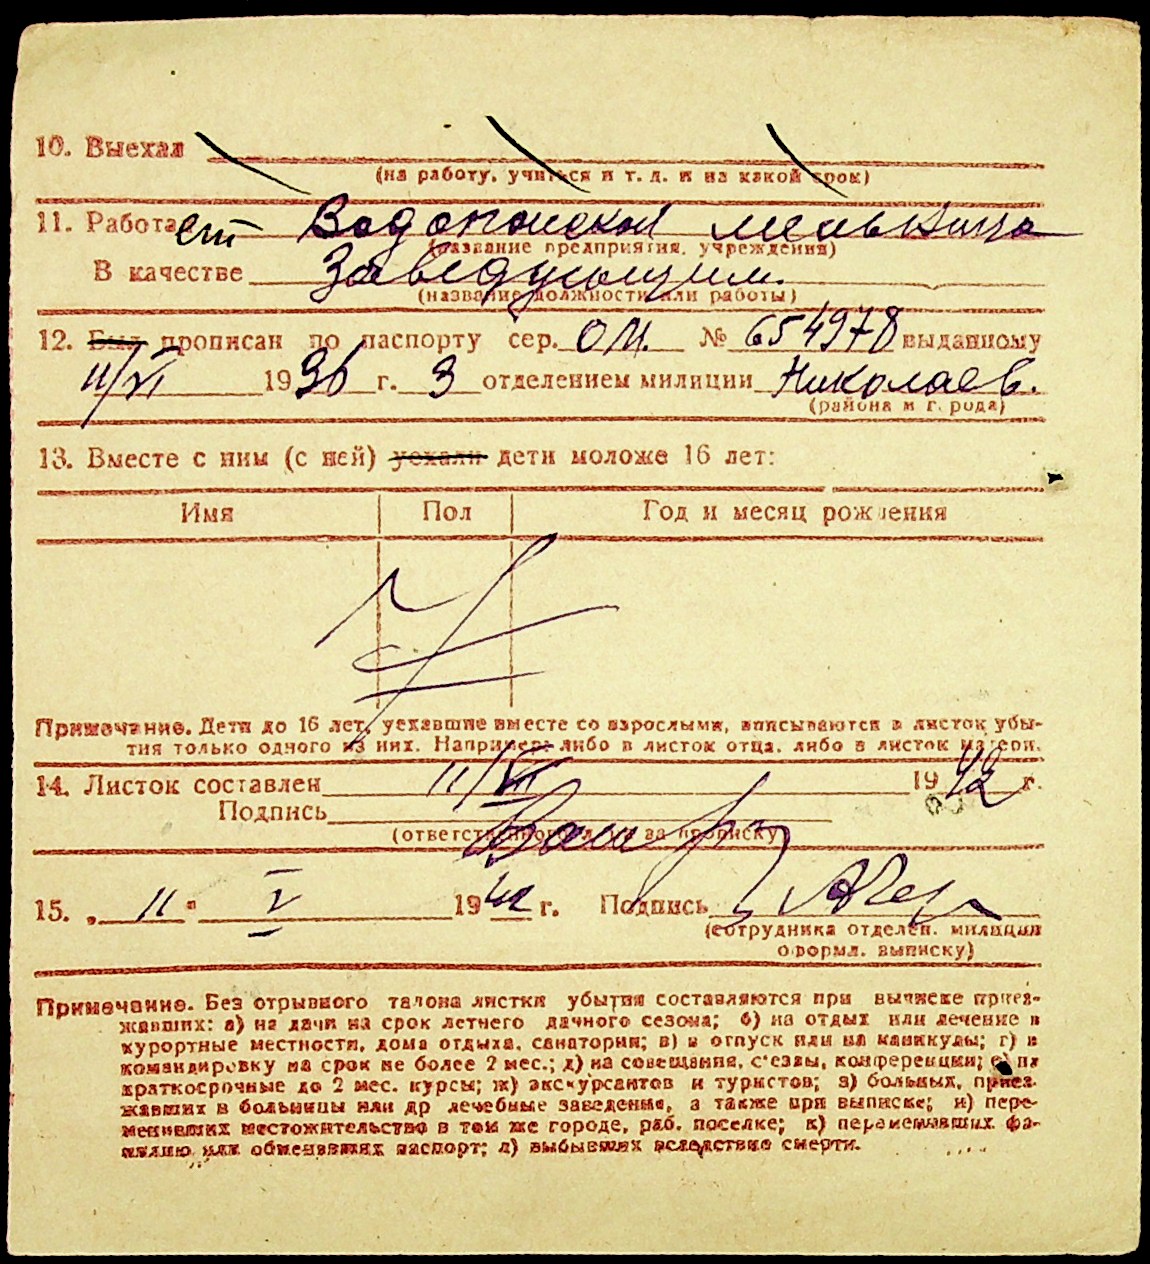 10. Выехал
(на работу, учиться и т. д. и на какой срок)
11. Работает Водопойской мельница
(название предприятия, учреждения)
В качестве Заведующим.
(название должности или работы)
12. Был прописан по паспорту сер. ОМ. № 654978 выданному
11/VI 1936 г. 3 отделением милиции Николаев.
(района и города)
13. Вместе с ним (с ней) уехали дети моложе 16 лет:
Имя Пол Год и месяц рождения
Примечание. Дети до 16 лет, уехавшие вместе со взрослыми, вписываются в листок убы-
тия только одного из них. Например: либо в листок отца, либо в листок матери.
14. Листок составлен 11/VII 1942 г.
Подпись
(ответственного лица за прописку)
15. „ 11 " V 1942 г. Подпись
(сотрудника отделен. милиции
оформл. выписку)
Примечание. Без отрывного талона листки убытия составляются при выписке приез-
жавших: а) на дачи на срок летнего дачного сезона; б) на отдых или лечение в
курортные местности, дома отдыха, санатории; в) в отпуск или на каникулы; г) в
командировку на срок не более 2 мес.; д) на совещания, с'езды, конференции; е) на
краткосрочные до 2 мес. курсы; ж) экскурсантов и туристов; з) больных, приез-
жавших в больницы или др лечебные заведения, а также при выписке; и) пере-
менивших местожительство в том же городе, раб. поселке; к) переменивших фа-
милию или обменявших паспорт; л) выбывших вследствие смерти.